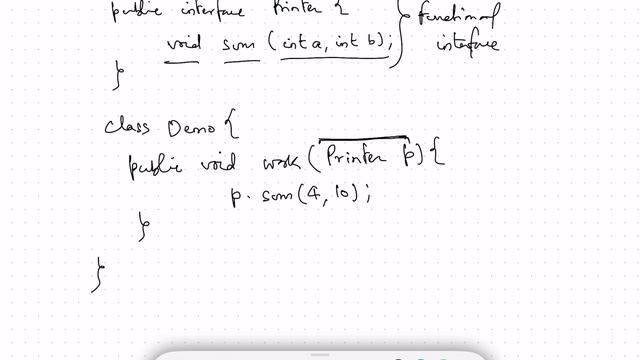 public interface Printer {
void sum (int a, int b);
}
functional
interface
class Demo {
public void work (Printer p) {
p. sum (4, 10);
}
}